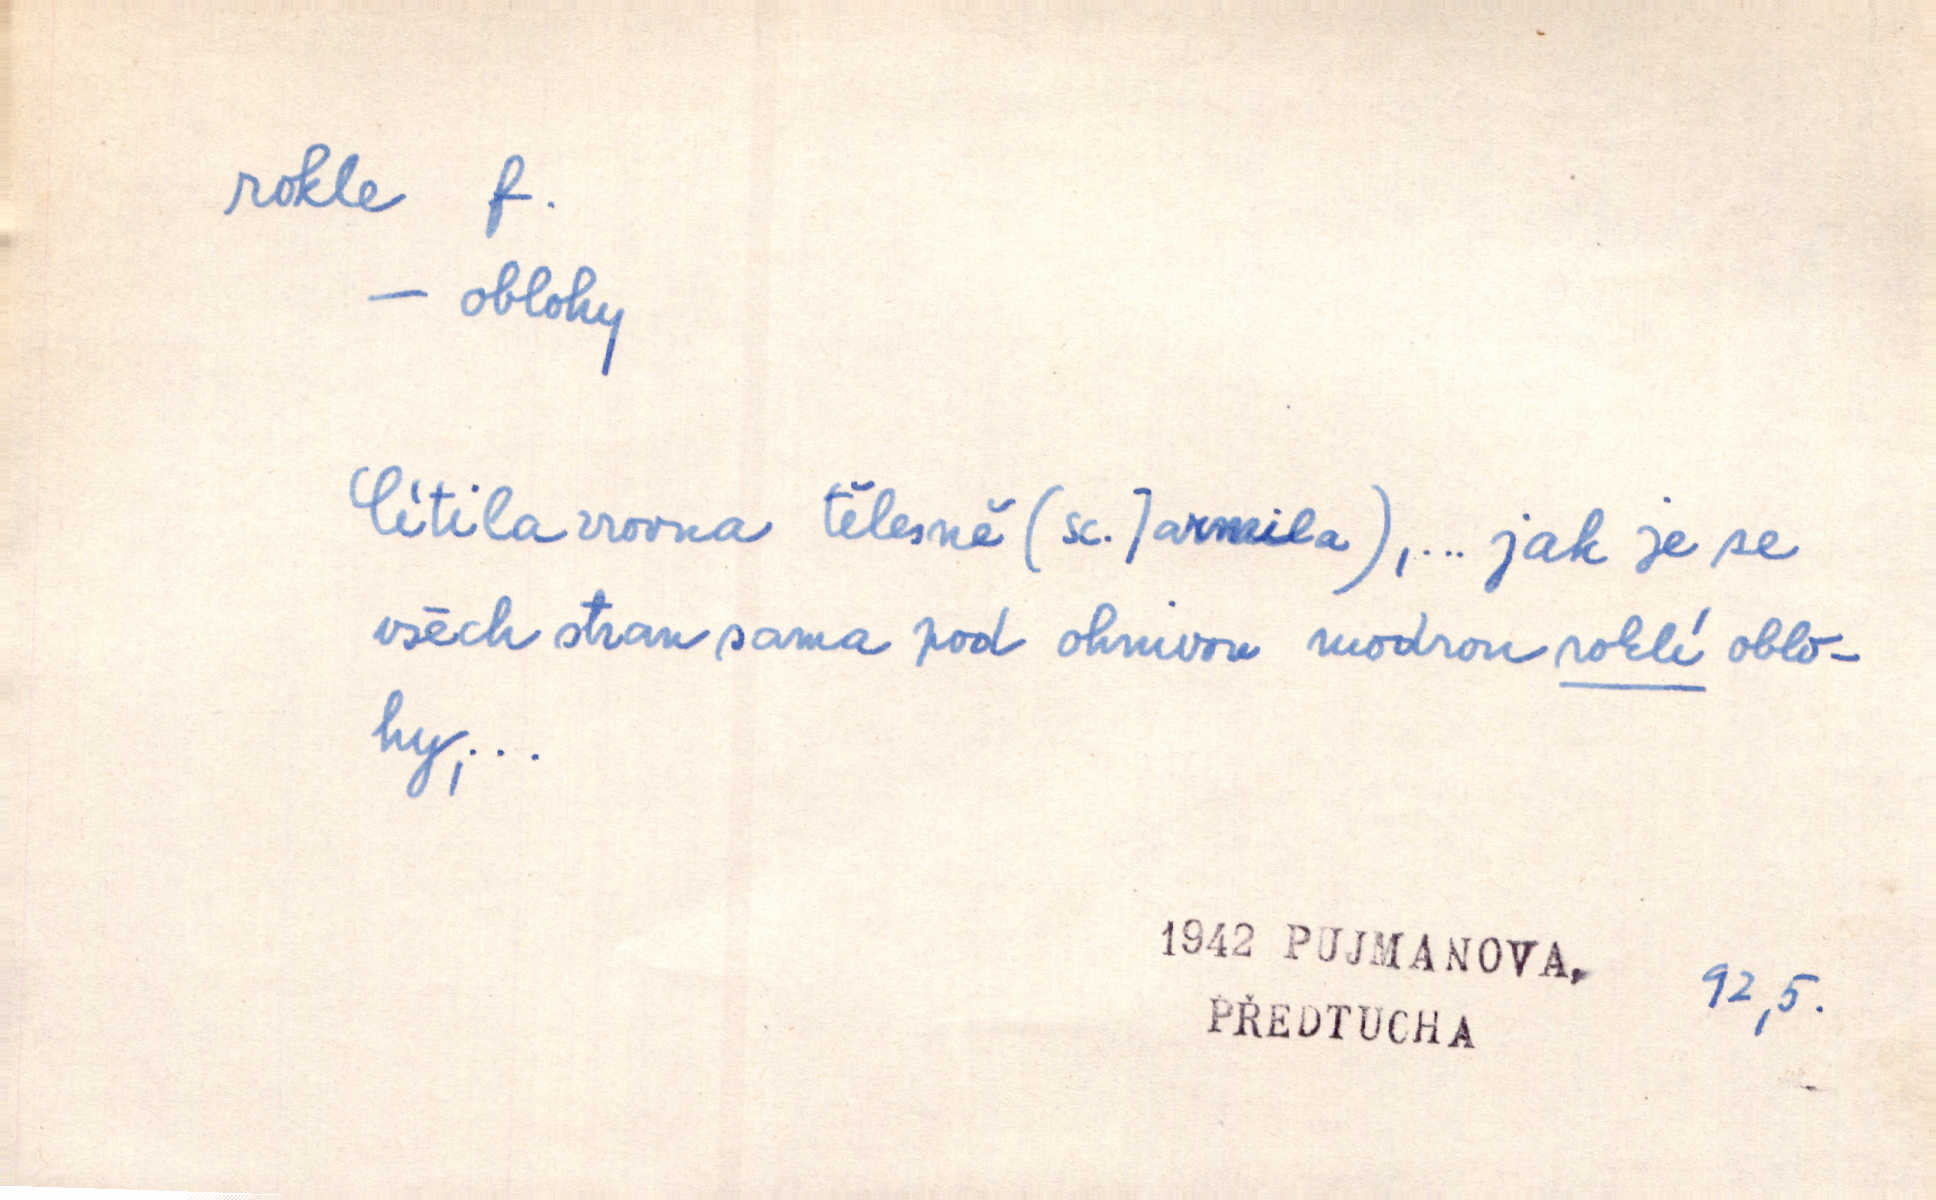 rokle f.
— oblohy
Cítila zrovna tělesně (sc. Jarmila),... jak je se
všech stran sama pod ohnivou modrou roklí oblo-
hy,...
1942 PUJMANOVA,
PŘEDTUCHA
92,5.